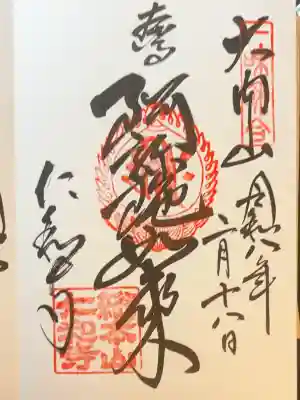 大内山
令和八年
二月十八日
奉
阿弥陀如来
仁和寺
総本山
仁和寺